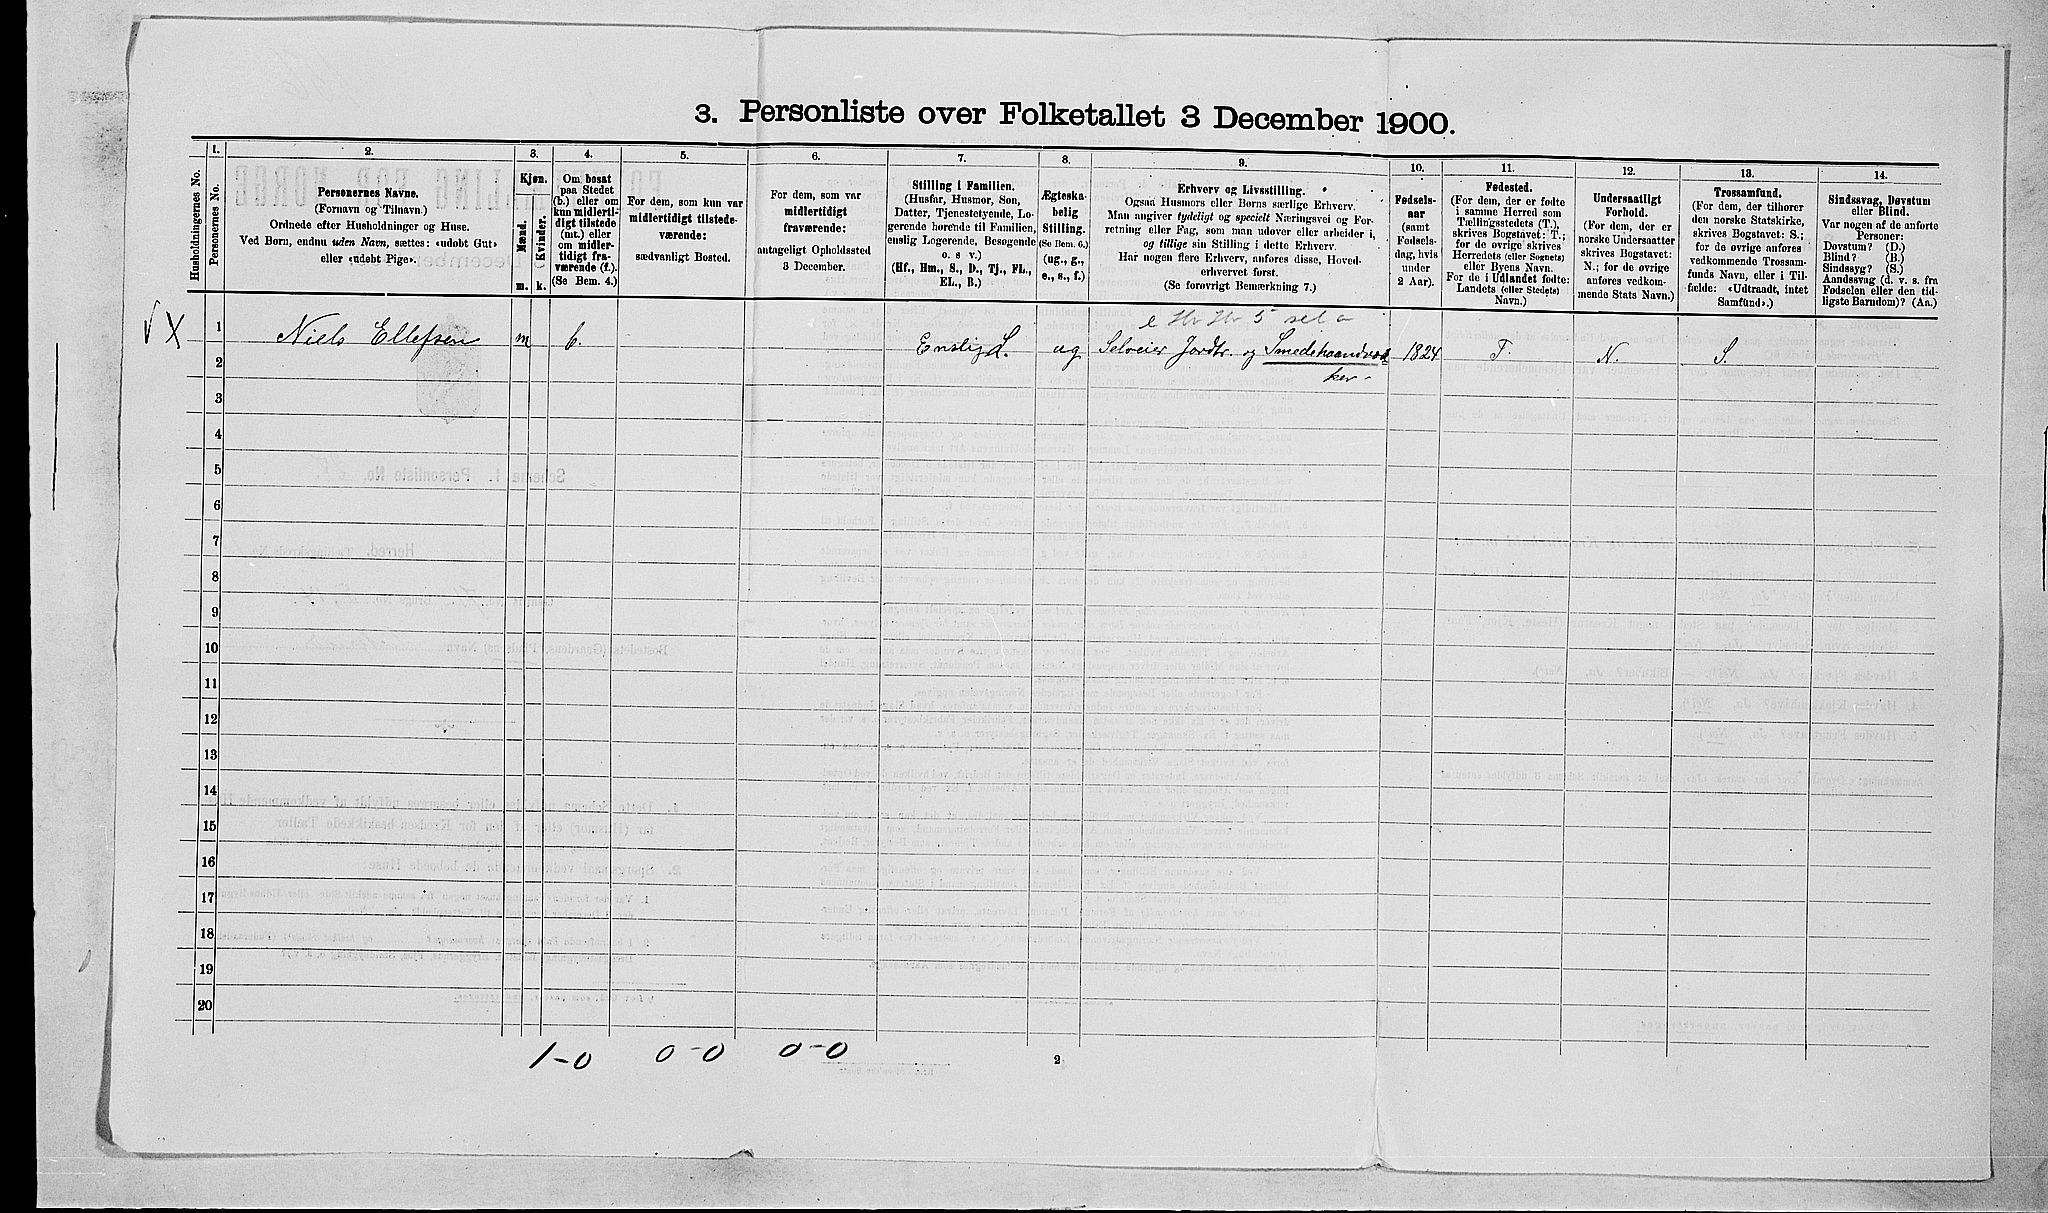 3. Personliste over Folketallet 3 December 1900.
Husholdningernes No.
1.
Personernes No.
2.
Personernes Navne.
(Fornavn og Tilnavn.)
Ordnede efter Husholdninger og Huse.
Ved Børn, endnu uden Navn, sættes: «udøbt Gut»
eller «udøbt Pige».
3.
Kjøn.
Mænd.
Kvinder.
m.
k.
4.
Om bosat
paa Stedet
(b.) eller om
kun midlerti-
digt tilstede
(mt.) eller
om midler-
tidigt fra-
værende (f.).
(Se Bem. 4.)
5.
For dem, som kun var
midlertidigt tilstede-
værende:
sædvanligt Bosted.
6.
For dem, som var
midlertidigt
fraværende:
antageligt Opholdssted
3 December.
7.
Stilling i Familien.
(Husfar, Husmor, Søn,
Datter, Tjenestetyende, Lo-
gerende hørende til Familien,
enslig Logerende, Besøgende
o. s v.)
(Hf., Hm., S., D., Tj., FL.,
EL., B.)
8.
Ægteska-
belig
Stilling.
(Se Bem. 6.)
(ug., g.,
e., s., f.)
9.
Erhverv og Livsstilling.
Ogsaa Husmors eller Børns særlige Erhverv.
Man angiver tydeligt og specielt Næringsvei og For-
retning eller Fag, som man udøver eller arbeider i,
og tillige sin Stilling i dette Erhverv.
Har nogen flere Erhverv, anføres disse, Hoved-
erhvervet først.
(Se forøvrigt Bemærkning 7.)
10.
Fødsels-
aar
(samt
Fødsels-
dag, hvis
under
2 Aar).
11.
Fødested.
(For dem, der er fødte
i samme Herred som
Tællingsstedets (T.),
skrives Bogstavet: T.;
for de øvrige skrives
Herredets (eller Sognets)
eller Byens Navn.
For de i Udlandet fødte:
Landets (eller Stedets)
Navn.)
12.
Undersaatligt
Forhold.
(For dem, der er
norske Undersaatter
skrives Bogstavet:
N.; for de øvrige
anføres vedkom-
mende Stats Navn.)
13.
Trossamfund.
(For dem, der tilhører
den norske Statskirke,
skrives Bogstavet: S.;
for de øvrige anføres
vedkommende Trossam-
funds Navn, eller i Til-
fælde: «Udtraadt, intet
Samfund».)
14.
Sindssvag, Døvstum
eller Blind.
Var nogen af de anførte
Personer:
Døvstum? (D.)
Blind? (B.)
Sindssyg? (S.)
Aandssvag (d. v. s. fra
Fødselen eller den tid-
ligste Barndom)? (Aa.)
X
1 Niels Ellefsen m b. Enslig L. ug Selveier Jordbr. og Smedehaandvær 1824 T. N. S.
ker
2
3
4
5
6
7
8
9
10
11
12
13
14
15
16
17
18
19
20
1-0 0-0 0-0
2